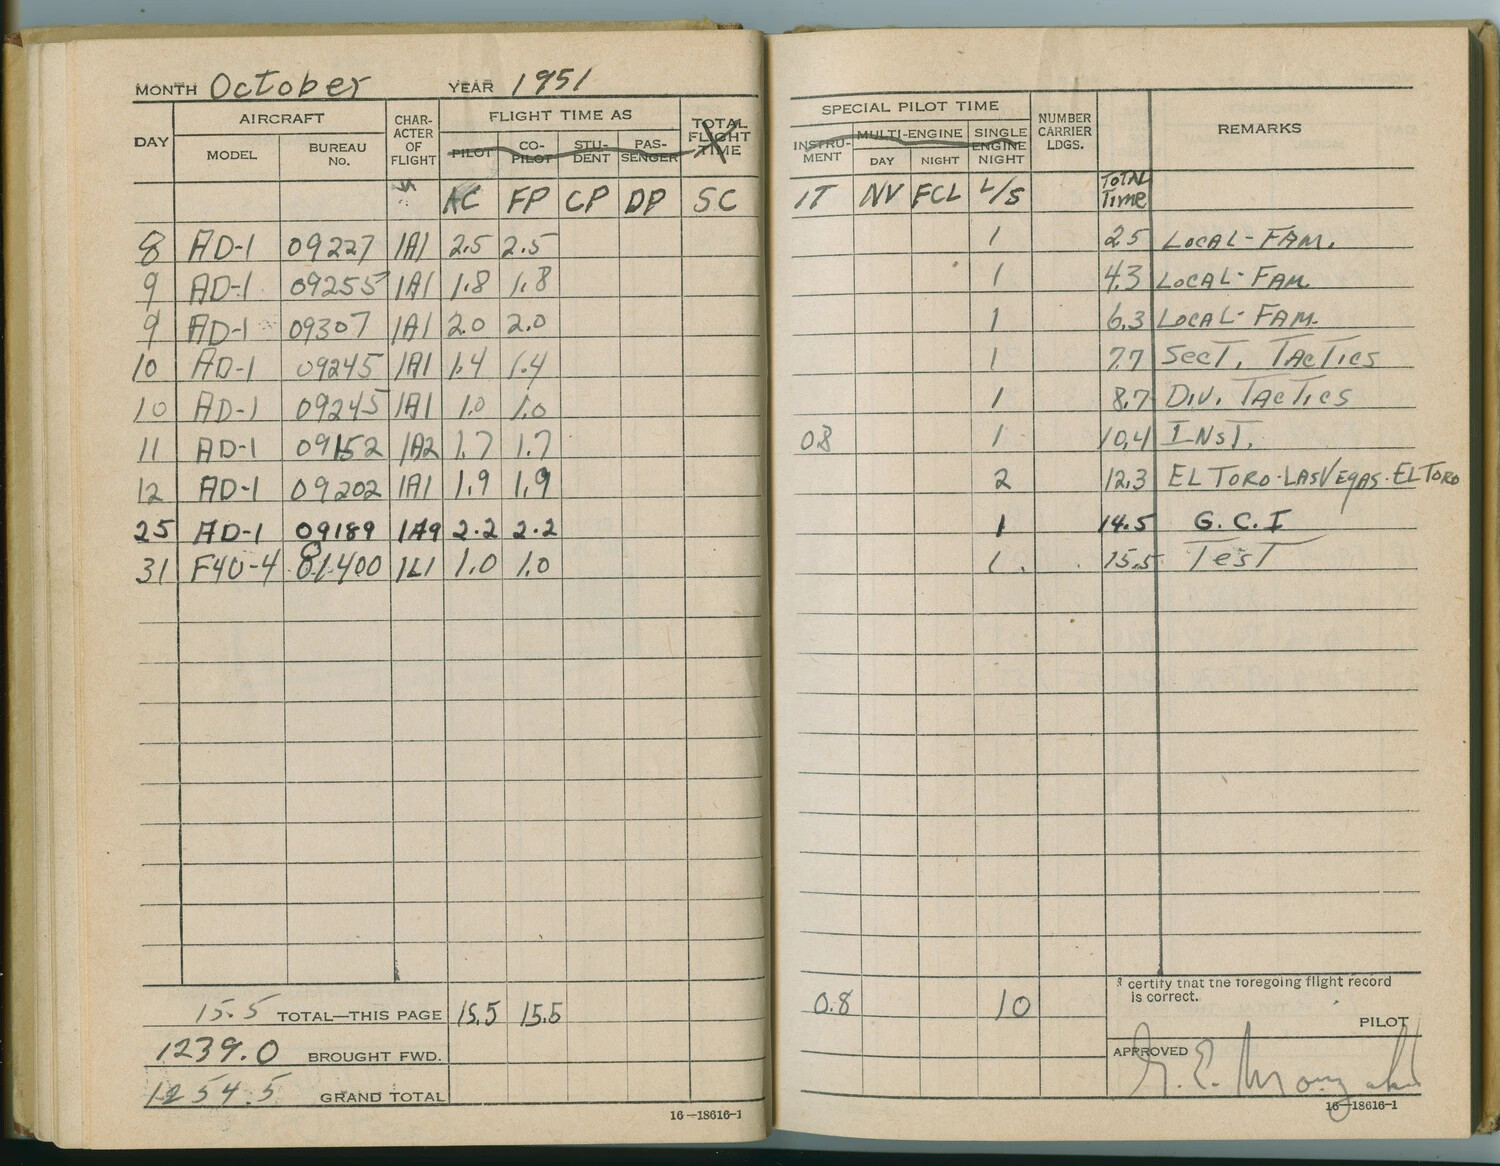 MONTH October YEAR 1951
DAY AIRCRAFT CHARACTER OF FLIGHT FLIGHT TIME AS TOTAL FLIGHT TIME
MODEL BUREAU NO. PILOT CO-PILOT STU-DENT PAS-SENGER
AC FP CP DP SC
8 AD-1 09227 1A1 2.5 2.5
9 AD-1 09255 1A1 1.8 1.8
9 AD-1 09307 1A1 2.0 2.0
10 AD-1 09245 1A1 1.4 1.4
10 AD-1 09245 1A1 1.0 1.0
11 AD-1 09152 1A2 1.7 1.7
12 AD-1 09202 1A1 1.9 1.9
25 AD-1 09189 1A9 2.2 2.2
31 F4U-4 81400 1L1 1.0 1.0
15.5 TOTAL—THIS PAGE 15.5 15.5
1239.0 BROUGHT FWD.
1254.5 GRAND TOTAL
16—18616-1
SPECIAL PILOT TIME NUMBER CARRIER LDGS. REMARKS
INSTRU-MENT MULTI-ENGINE SINGLE ENGINE NIGHT
DAY NIGHT
IT NV FCL L/S TOTAL Time
1 2.5 LOCAL-FAM.
1 4.3 LOCAL-FAM
1 6.3 LOCAL-FAM.
1 7.7 SecT. TACTICS
1 8.7 DIV. TACTICS
0.8 1 10.4 INST.
2 12.3 EL TORO-LAS VEGAS-EL TORO
1 14.5 G.C.I
1 15.5 TesT
0.8 10
I certify that the foregoing flight record
is correct.
PILOT
APPROVED
16—18616-1